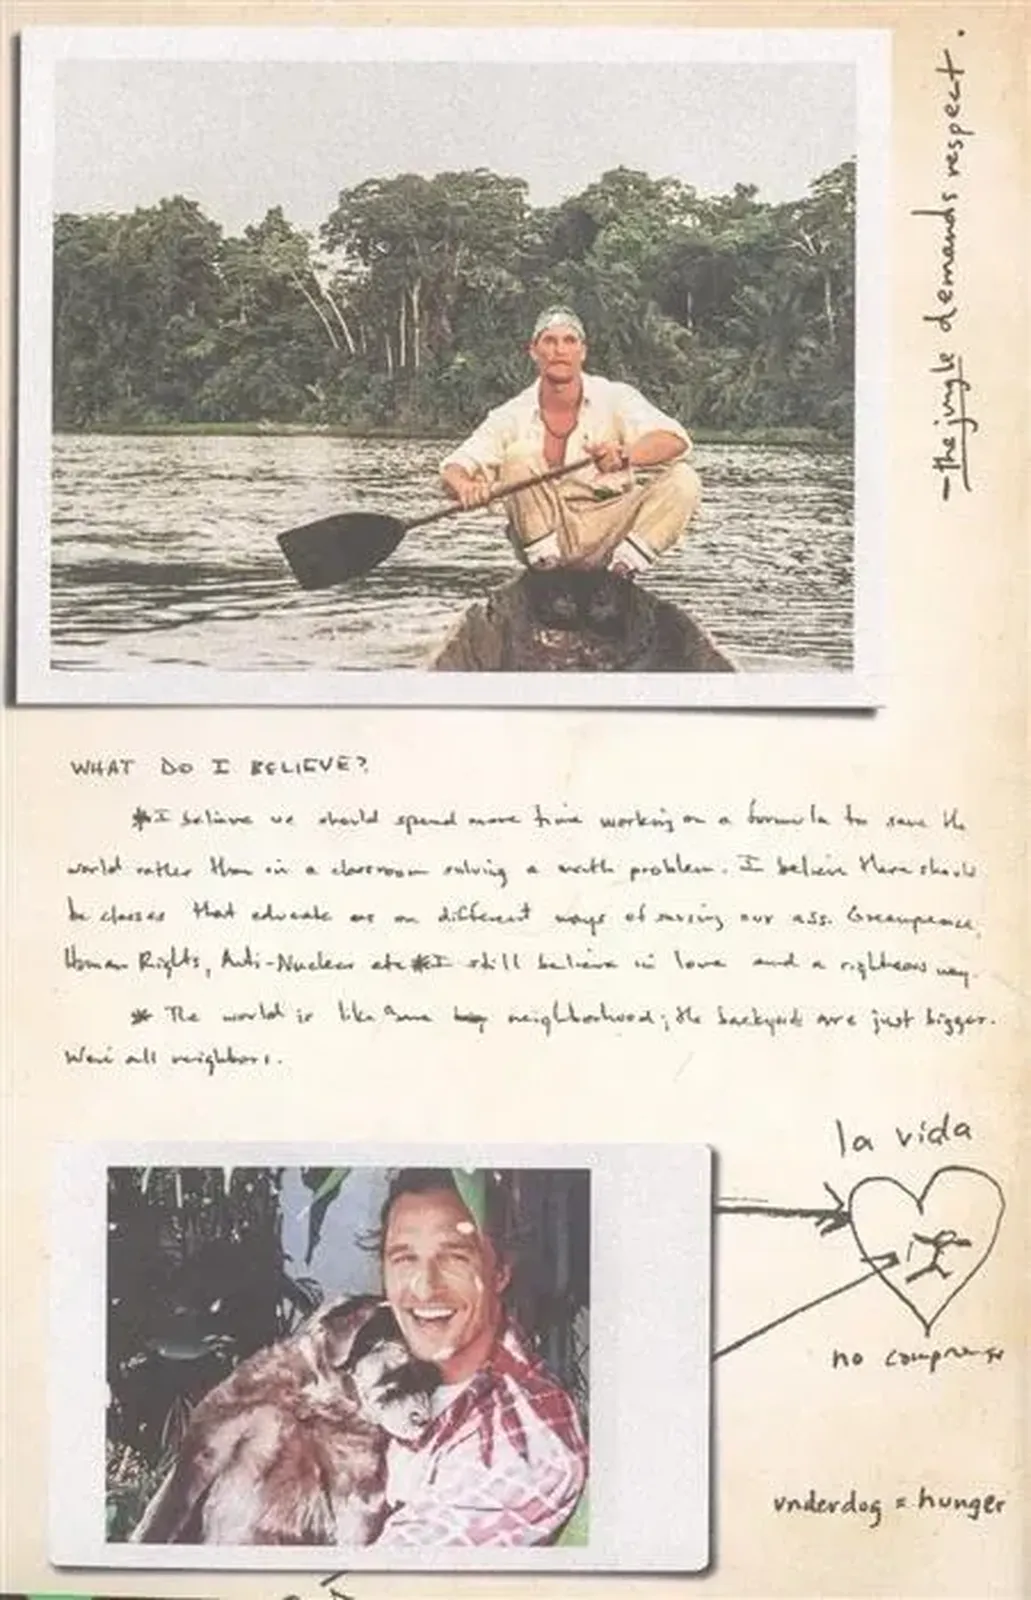 -the jungle demands respect.
WHAT DO I BELIEVE?
*I believe we should spend more time working on a formula to save the
world rather than in a classroom solving a math problem. I believe there should
be classes that educate us on different ways of saving our ass. Greenpeace,
Human Rights, Anti-Nuclear etc *I still believe in love and a righteous way.
* The world is like a neighborhood; the backyards are just bigger.
We're all neighbors.
la vida
no
underdog = hunger